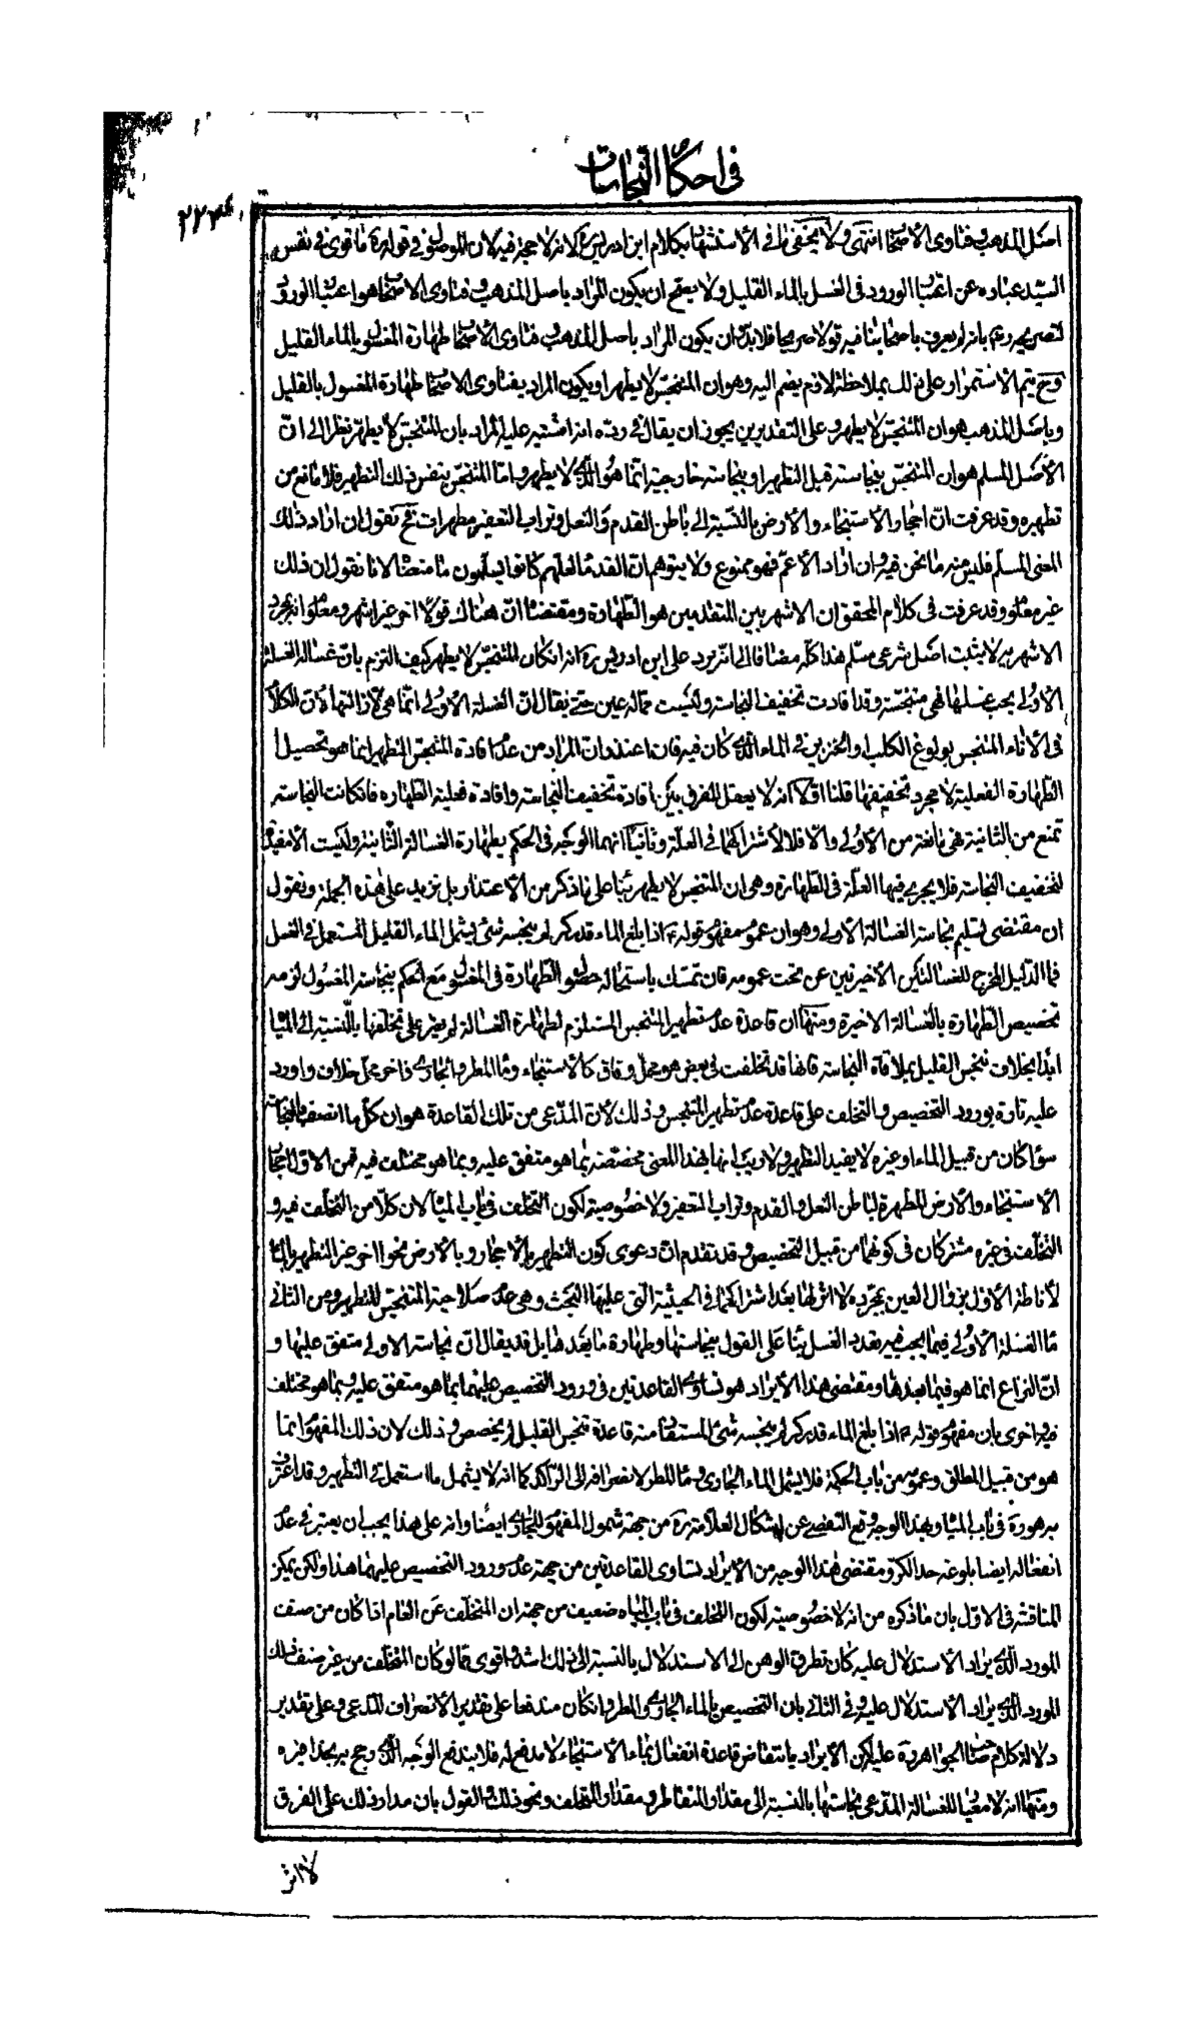 في احكام النجاسات
اصل المذهب وفتاوى الأصحاب انتهى ولا يخفى ما في الأستشهاد بكلام ابن ادريس ره لانه لا حجة فيه لان الموصول في قوله ره ما قوى في نفس
السّيد عبارة عن اعتبار الورود في الغسل بالماء القليل ولا يصح ان يكون المراد باصل المذهب وفتاوى الاصحاب هو اعتبار الورود
لتصريحه ره بانه لم يعرف باصحابنا فيه قولا صريحا فلا بدّ ان يكون المراد باصل المذهب وفتاوى الأصحاب طهارة المغسول بالماء القليل
وح يتم الاستمرار على ذلك بملاحظة لازم يضم اليه وهو ان المتنجّس لا يطهر او يكون المراد بفتاوى الاصحاب طهارة المغسول بالقليل
وباصل المذهب هو ان المتنجّس لا يطهر وعلى التقديرين يجوز ان يقال في ردّه انه اشتبه عليه المراد بان المتنجّس لا يطهّر نظرا الى انّ
الأصل المسلم هو ان المتنجّس بنجاسة قبل التطهير او بنجاسة خارجية انما هو الّذي لا يطهر وامّا المتنجّس بنفس ذلك التطهير فلا مانع من
تطهيره وقد عرفت انّ احجار الاستنجاء والأرض بالنّسبة الى باطن القدم والنعل وتراب التعفير مطهرات فح نقول ان اراد ذلك
المعنى المسلم فليس منه ما نحن فيه وان اراد الأعمّ فهو ممنوع ولا يتوهم انّ القدماء لعلّهم كانوا يسلّمون ما منعناه لانا نقول ان ذلك
غير معلوم وقد عرفت في كلام المحقق ان الاشهر بين المتقدمين هو الطّهارة ومقتضاه انّ هناك قولا اخر غير اشهر ومعلوم ان مجرد
الاشهرية لا يثبت اصل شرعي مسلّم هذا كلّه مضافا الى انّه يرد على ابن ادريس ره انه ان كان المتنجّس لا يطهر كيف التزم بانّ غسالة الغسلة
الأولى يجب غسلها فهي متنجّسة وقد افادت تخفيف النجاسة وليست مما له عين حتّى يقال انّ الغسلة الأولى انّما هي لازالتها لأن الكلام
في الاناء المتنجس بولوغ الكلب او الخنزير في الماء الّذي كان فيه فان اعتذر بان المراد من عدم افادة المتنجّس التطهير انما هو تحصيل
الطّهارة الفعلية لا مجرد تخفيفها قلنا اوّلا انه لا يعقل الفرق بين افادة تخفيف النجاسة وافادة فعلية الطّهارة فان كانت النجاسة
تمنع من الثانية فهي مانعة من الأولى والّا فلا لاشتراكهما في العلّة وثانيا انهما الوجه في الحكم بطهارة الغسالة الثّانية وليست الا مفيدة
لتخفيف النجاسة فلا يجري فيها العلّة في الطّهارة وهي ان المتنجّس لا يطهر بناء على ما ذكر من الأعتذار بل نزيد على هذه الجملة ونقول
ان مقتضى تسليم نجاسة الغسالة الأولى وهو ان عموم مفهوم قوله ع اذا بلغ الماء قدر كر لم ينجسه شيء يشمل الماء القليل المستعمل في الغسل
فما الدّليل المخرج للغسالتين الأخيرتين عن تحت عمومه فان تمسّك باستحالة حصول الطّهارة في المغسول مع الحكم بنجاسة المغسول لزمه
تخصيص الطّهارة بالغسالة الاخيرة ومنها ان قاعدة عدم تطهير المتنجس المستلزم لطهارة الغسالة لم يعثر على تخلّفها بالنسبة الى المياه
ابدا بخلاف تنجّس القليل بملاقاة النجاسة فانها قد تخلفت في بعض هو محلّ وفاق كالأستنجاء وماء المطر والجاري وآخر محلّ خلاف واورد
عليه تارة بورود التخصيص والتخلف على قاعدة عدم تطهير المتنجس وذلك لأن المدّعى من تلك القاعدة هو ان كلّ ما اتصف بالنجاسة
سواء كان من قبيل الماء او غيره لا يفيد التطهير ولا ريب انها بهذا المعنى مخصّصة بما هو متفق عليه وبما هو مختلف فيه فمن الاوّل احجار
الأستنجاء والأرض المطهرة لباطن النعل والقدم وتراب التعفير ولا خصوصية لكون التخلف في باب المياه لان كلّا من التخلّف فيه و
التخلّف في غيره مشتركان في كونهما من قبيل التخصيص وقد تقدم انّ دعوى كون التطهير بالأحجار وبالأرض نحوا اخر غير التطهير بالماء
لأناطة الأوّل بزوال العين بمجرّده لا اثر لها بعد اشتراكهما في الحيثية التي عليها البحث وهي عدم صلاحية المتنجّس للتطهير ومن الثاني
ماء الغسلة الأولى فيما يجب فيه تعدد الغسل بناء على القول بنجاستها وطهارة ما بعدها بل قد يقال انّ نجاسة الاولى متفق عليها و
انّ النزاع انما هو فيما بعدها ومقتضى هذا الأيراد هو تساوي القاعدتين في ورود التخصيص عليهما بما هو متفق عليه وبما هو مختلف
فيه واخرى بان مفهوم قوله ع اذا بلغ الماء قدر كر لم ينجسه شئ المستفاد منه قاعدة تنجس القليل لم يخصص وذلك لان ذلك المفهوم انما
هو من قبيل المطلق وعمومه من باب الحكمة فلا يشمل الماء الجاري وماء المطر لانصرافه الى الرّاكد كما انه لا يشمل ما استعمل في التطهير وقد اعترف
به هو ره في باب المياه وبهذا الوجه وقع التفصّي عن اشكال العلّامة ره من جهة شمول المفهوم للجاري ايضا وانه على هذا يجب ان يعتبر في عدم
انفعاله ايضا بلوغه حد الكر ومقتضى هذا الوجه من الأيراد تساوى القاعدتين من جهة عدم ورود التخصيص عليهما هذا ولكن يمكن
المناقشة في الاول بان ما ذكره من انه لا خصوصية لكون التخلف في باب المياه ضعيف من جهة ان المتخلّف عن العام اذا كان من صنف
المورد الّذي يراد الأستدلال عليه كان تطرق الوهن الى الاستدلال بالنسبة الى ذلك اشد واقوى ممّا لو كان المتخلّف من غير صنف ذلك
المورد الّذي يراد الأستدلال عليه وفي الثاني بان التخصيص بالماء الجاري والمطر وان كان مندفعا على تقدير الأنصراف المدّعى وعلى تقدير
دلالة كلام صاحب الجواهر ره عليه لكن الأيراد بانتقاض قاعدة انفعال بماء الأستنجاء لا مدفع له فلا يندفع الوجه الّذي رجح به بحذافيره
ومنها انه لا معيار للغسالة المدّعى نجاستها بالنسبة الى مقدار المتقاطر ومقدار المتخلف ونحو ذلك والقول بان مدار ذلك على الفرق
لا اثر